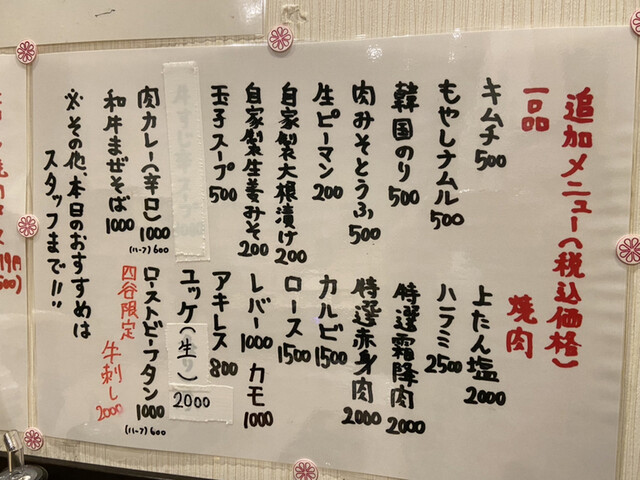 追加メニュー(税込価格)
一品
キムチ 500
もやしナムル 500
韓国のり 500
肉みそとうふ 500
生ピーマン 200
自家製大根漬け 200
自家製生姜みそ 200
玉子スープ 500
肉カレー(辛口) 1000
(ハーフ) 600
和牛まぜそば 1000
※その他、本日のおすすめは
スタッフまで!!
焼肉
上たん塩 2000
ハラミ 2500
特選霜降肉 2000
特選赤身肉 2000
カルビ 1500
ロース 1500
レバー 1000 カモ 1000
アキレス 800
ユッケ(生) 2000
ローストビーフタン 1000
(ハーフ) 600
四谷限定
牛刺し 2000